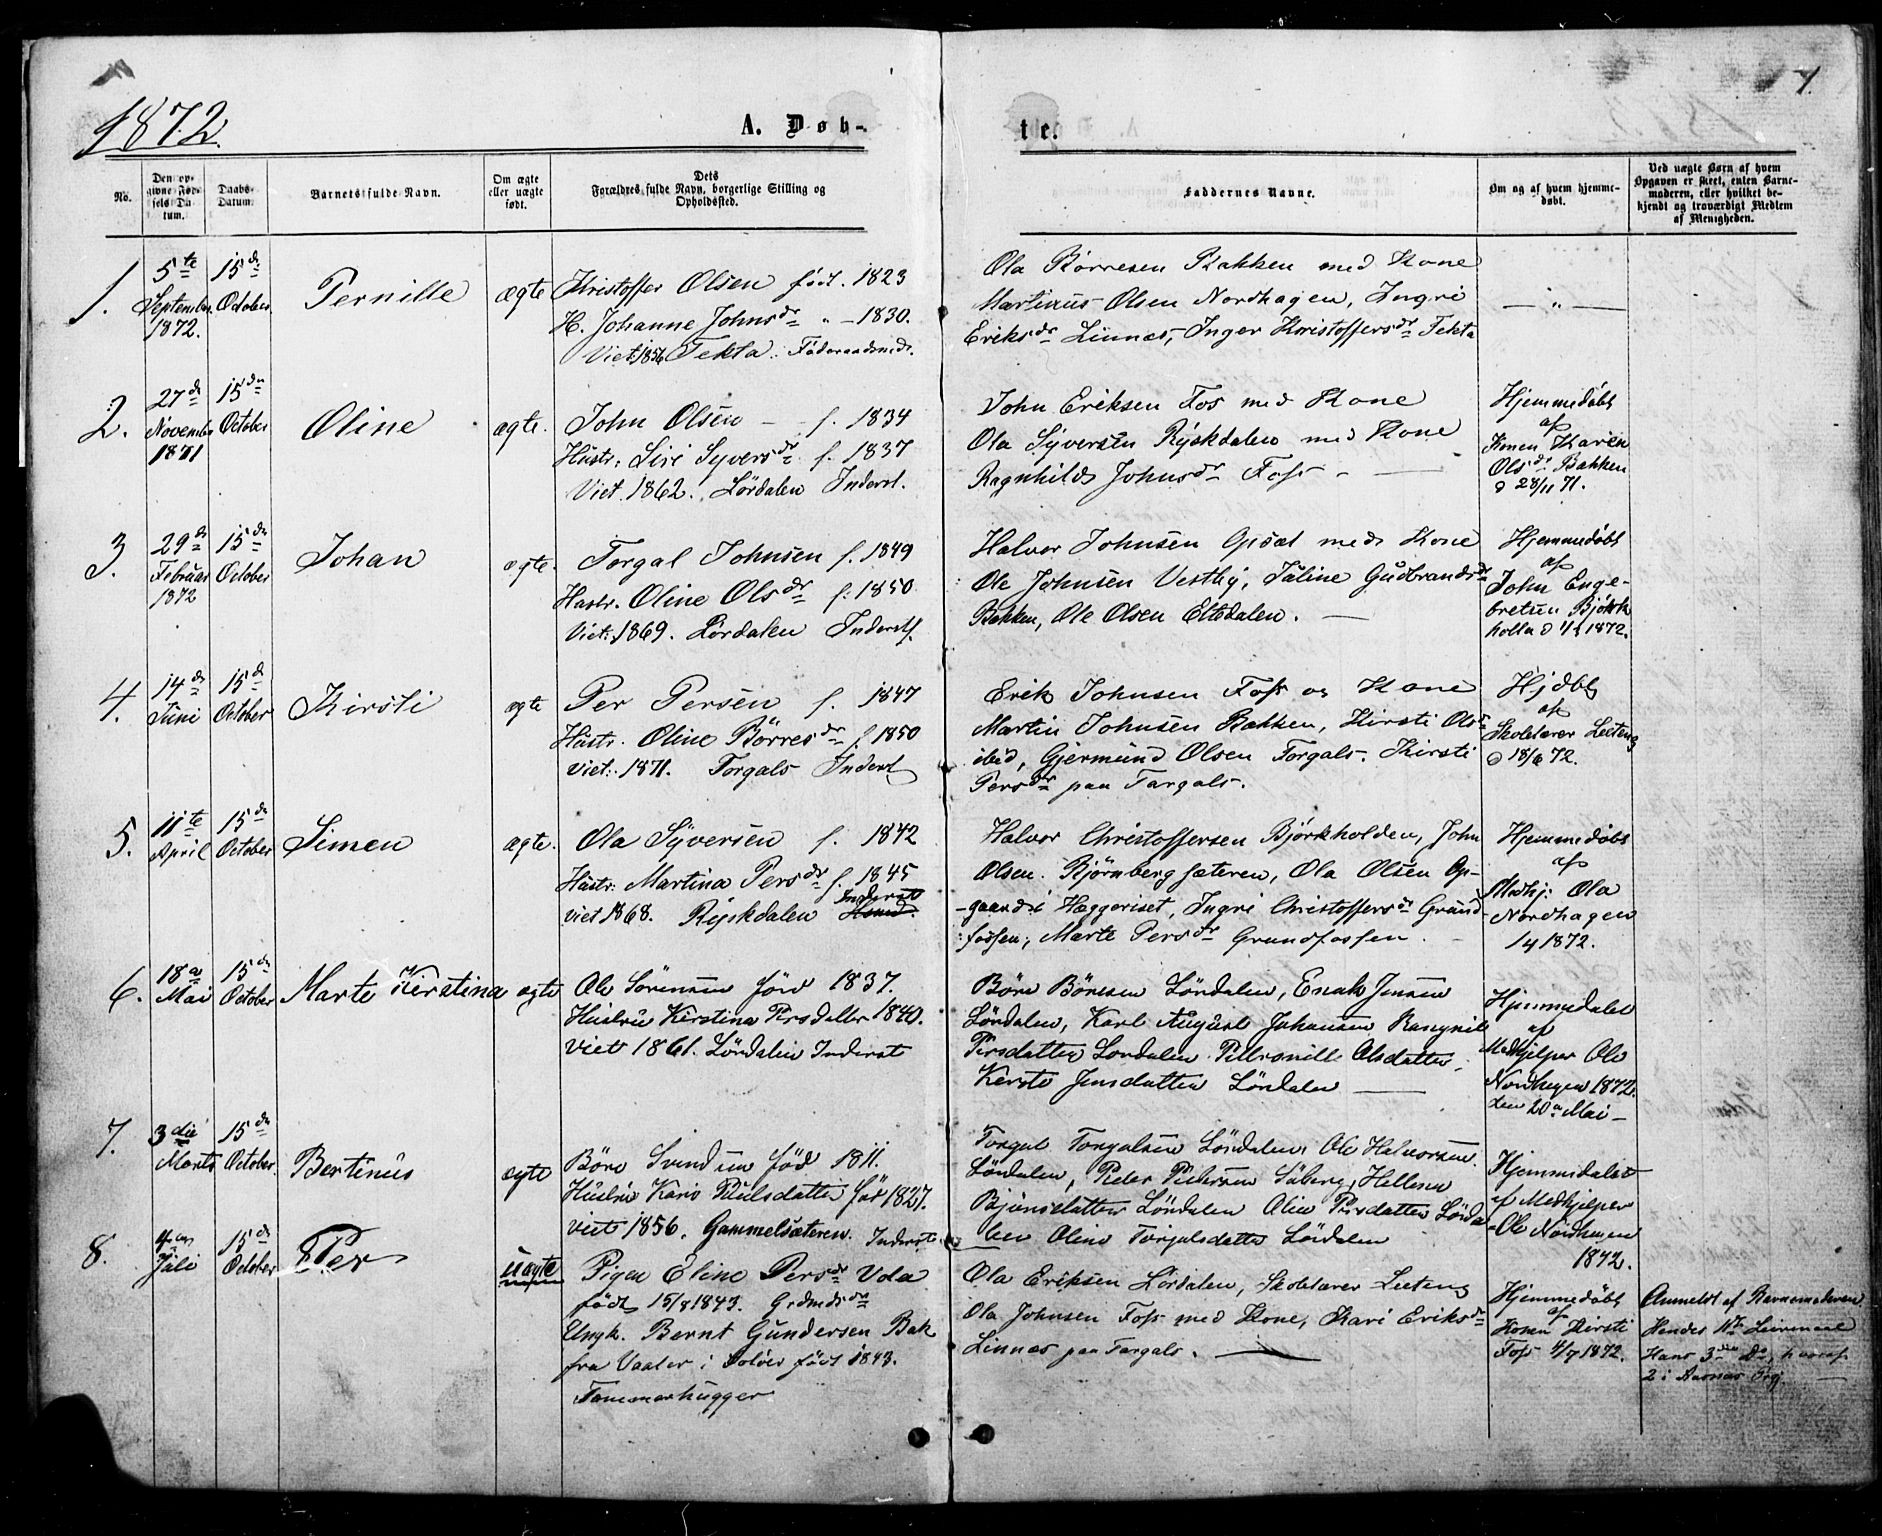 1872.
A. Døb-
te.
No.
Den op-
givne Fød-
sels Da-
tum.
Daabs-
Datum.
Barnets fulde Navn.
Om ægte
eller uægte
født.
Dets
Forældres fulde Navn, borgerlige Stilling og
Opholdssted.
Faddernes Navne.
Om og af hvem hjemme-
døbt.
Ved uægte Børn af hvem
Opgaven er skeet, enten Barne-
moderen, eller hvilket be-
kjendt og troværdigt Medlem
af Menigheden.
1.
5te
September
1872.
15de
October
Pernille
ægte
Kristoffer Olsen født. 1823
H. Johanne Johnsdr " - 1830.
Viet 1856 Tekta.
Ola Børresen Bakken med Kone
Martinus Olsen Nordhagen, Ingri
Eriksdr Linnes, Inger Kristoffersdr Tekta
— " —
2.
27de
Novemb
1871
15de
October
Oline
ægte.
John Olsen - f. 1834
Hustr. Siri Syversdr f. 1837
Viet. 1862. Lördalen Inderst.
John Eriksen Fos med Kone
Ola Syversen Ryskdalen med Kone
Ragnhild Johnsdr Foss - —
Hjemmedøbt
af
Konen Karen
Olsdr Bakken
d 28/11 71.
3.
29de
Februar
1872
15de
October
Johan
ægte.
Torgal Johnsen f. 1849
Hustr. Oline Olsdr f. 1850
Viet. 1869. Lördalen Inderst.
Halvor Johnsen Opsæt med Kone
Ole Johnsen Vestby, Taline Gudbrandsdr
Bakken, Ole Olsen Eltedalen. —
Hjemmedøbt
af
John Enge-
bretsen Bjørk
holla d 1/4 1872.
4.
14de
Juni
15de
October
Kirsti
ægte
Per Persen f. 1847
Hustr. Oline Börresdr f. 1850
viet. 1871. Torgals Inderst
Erik Johnsen Foss og Kone
Martin Johnsen Bakken, Kirsti Olsdr
ibid, Gjermund Olsen Torgals. Kirsti
Persdr paa Targals.
Hjdbt
af
Skolelærer Leeteng
d 18/6 72.
5.
11te
April
15de
October
Simen
ægte.
Ola Syversen f. 1842
Hustr. Martina Persdr f. 1845
Inderst
viet 1868. Ryskdalen
Halvor Christoffersen Bjørkholden, John
Olsen. Bjørnbergsæteren, Ola Olsen Op-
-gaard i Hæggeriset, Ingri Christoffersdr Grund-
fossen, Marte Persdr Grundfossen.
Hjemmedøbt
af
Medhj. Ola
Nordhagen
1872.
6.
18de
Mai
15de
October
Marte Kerstina
ægte
Ole Sörensen föd 1837.
Hustru Kerstina Persdatter 1840.
Viet 1861. Lördalen Inderst
Böre Böresen Löndalen, Enok Jensen
Löndalen, Karl August Johansen Rangnil
Persdatter Löndalen Petronille Olsdatter,
Kersti Jensdatter Löndalen —
Hjemmedøbt
af
Medhjelper Ole
Nordhagen 1872.
den 20de Mai -
7.
3die
Marts
15de
October.
Bertinus
ægte
Böre Svendsen föd 1811.
Hustru Kari Paulsdatter föd 1827.
viet 1856. Gammelsæteren. Inderst.
Torgal Torgalsen Löndalen, Ole Halvorsen
Löndalen, Peder Pedersen Säberg, Hellena
Bjönsdatter Löndalen Oline Persdatter Lönda
len Oline Torgalsdatter Löndalen
Hjemmedøbt
af Medhjelper
Ole Nordhagen
1872.
8.
4de
Juli
15de
October
Per
uægte
Pigen Eline Persdr Vola
født 15/8 1843.
Ungk. Bernt Gundersen Bak
fra Vaaler i Solöer født 1843.
Tømmerhugger
Ola Eriksen Lördalen, Skolelærer Leeteng
Ola Johnsen Foss med Kone, Kari Eriksdr
Linnes paa Targals. —
Hjemmedøbt
af
Konen Kirsti
Foss 4/7 1872.
Anmeldt af Barnemoderen
Hendes 1te Leiermaal
Hans 3die Do, hvoraf
2 i Aasnes Prgj.